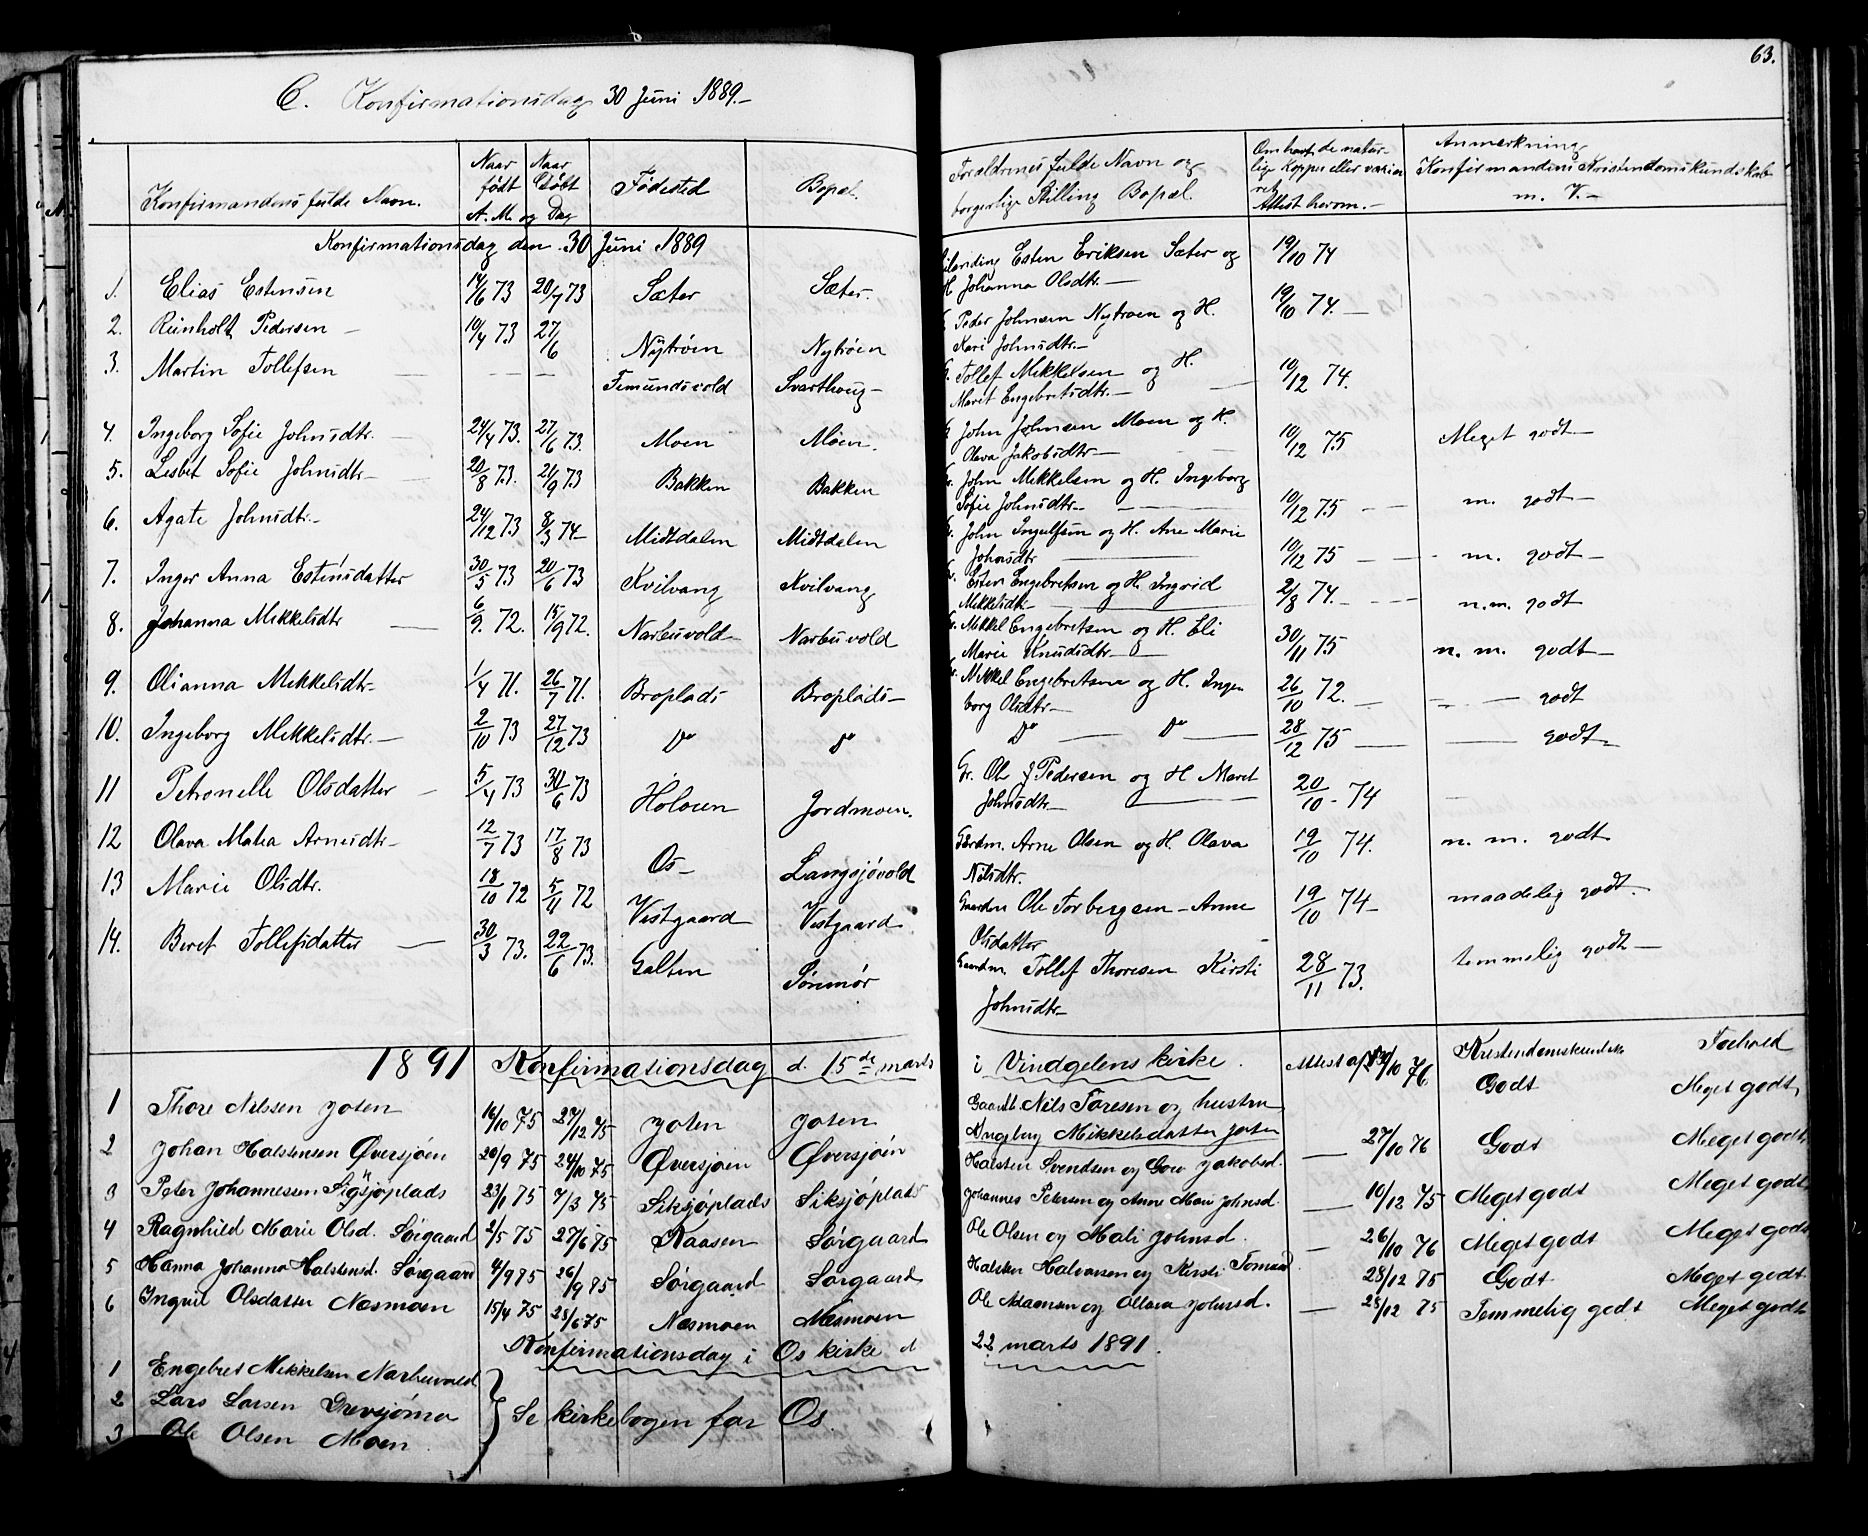 63.
C. Konfirmationsdag 30 Juni 1889.-
Konfirmandens fulde Navn. Naar født A. M. og Dag Naar Døbt Fødested Bopæl.
Forældrenes fulde Navn og borgerlige Stilling Bopæl. Om havt de naturlige Kopper eller vaccineret Attest herom.- Anmerkning Konfirmandens Kristendomskundskab m. V.-
Konfirmationsdag den 30 Juni 1889
1. Elias Estensen 14/6 73 20/7 73 Sæter Sæter. Esten Eriksen Sæter og H Johanna Olsdtr.- 19/10 74
2. Reinholt Pedersen 10/4 73 27/6 Nytrøen Nytrøen Peder Johnsen Nytrøen og H. Kari Johnsdtr.- 19/10 74.
3. Martin Tollefsen — — Femundsvold Svarthoug- Tollef Mikkelsen og H. Maret Engebretsdtr.- 10/12 74.
4. Ingeborg Sofie Johnsdtr. 24/4 73. 27/6 73. Moen Moen. John Johnsen Moen og H. Olava Jakobsdtr- 10/12 75 Meget godt-
5. Lisbet Sofie Johnsdtr- 20/8 73. 21/9 73 Bakken Bakken John Mikkelsen og H. Ingeborg Sofie Johnsdtr- 10/12 75 m. godt-
6. Agate Johnsdtr- 24/12 73 8/3 74- Midtdalen Midtdalen John Ingulfsen og H. Ane Marie Johnsdtr 10/12 75 m. godt-
7. Inger Anna Estensdatter 30/5 73 20/6 73 Kvilvang Kvilvang Esten Engebretsen og H. Ingrid Mikkelsdtr- 2/8 74. n.m. godt
8. Johanna Mikkelsdtr 6/9. 72. 15/9 72. Narbuvold Narbuvold Mikkel Engebretsen og H. Eli Marie Knudsdtr- 30/11 75 n. m. godt-
9. Olianna Mikkelsdtr- 1/4 71. 26/7 71. Broplads Broplads- Mikkel Engebretsen og H. Ingeborg Olsdtr- 26/10 72. godt
10. Ingeborg Mikkelsdtr.- 2/10 73 27/12 73 Do Do Do Do 28/12 75 godt-
11 Petronelle Olsdatter 5/4 73 30/6 73 Holoen Jordmoen. Gr. Ole J Pedersen og H Maret Johnsdtr- 20/10- 74
12 Olava Matea Arnesdtr- 12/7 73 17/8 73 Os- Langsjøvold Gaardm. Arne Olsen og H. Olava Nilsdtr. 19/10 74. n. m. godt
13 Marie Olsdtr. 18/10 72 5/11 72 Vestgaard Vestgaard Gaardm Ole Torbergsen - Anne Olsdatter 19/10 74- maadelig godt.
14. Beret Tollefsdatter 30/3 73. 22/6 73. Galten Sønmør Gaardm Tollef Thoresen Kirsti Johnsdtr- 28/11 73. temmelig godt-
1891 Konfirmationsdag d. 15de marts i Vindgelens kirke. Attest af Kristendomskundsk. Forhold
1 Thore Nilssen Joten 16/10 75 27/12 75 Joten Joten Gaardb. Nils Toresen og hustru Ingebrg Mikkelsdatter Joten /10 76 Godt Meget godt
2 Johan Halstensen Øversjøen 20/9 75 24/10 75 Øversjøen Øversjøen Halsten Svendsen og Goro Jakobsd. 27/10 76 Godt Meget godt
3 Peter Johannesen Sigsjøplads 23/1 75 7/3 75 Siksjøplads Siksjøplads Johannes Petersen og Anne Mari Johnsd. 10/12 75 Meget godt Meget godt
4 Ragnhild Marie Olsd. Sørgaard 2/5 75 27/6 75 Kaasen Sørgaard Ole Olsen og Mali Johnsd. 26/10 76 Meget godt Meget godt
5 Hanna Johanna Halstensd. Sørgaard 4/9 75 26/9 75 Sørgaard Sørgaard Halsten Halvorsen og Kirsti Tomasd 28/12 75 Godt Meget godt
6 Ingrid Olsdatter Næsmoen 15/4 75 25/6 75 Næsmoen Næsmoen Ole Adamsen og Ollava Johnsd. 28/12 75 Temmelig godt Meget godt
Konfirmationsdag i Os kirke d 22 marts 1891.
1 Engebret Mikkelsen Narbuvold
2 Lars Larsen Grevsjømo Se kirkebogen for Os
3 Ole Olsen Moen